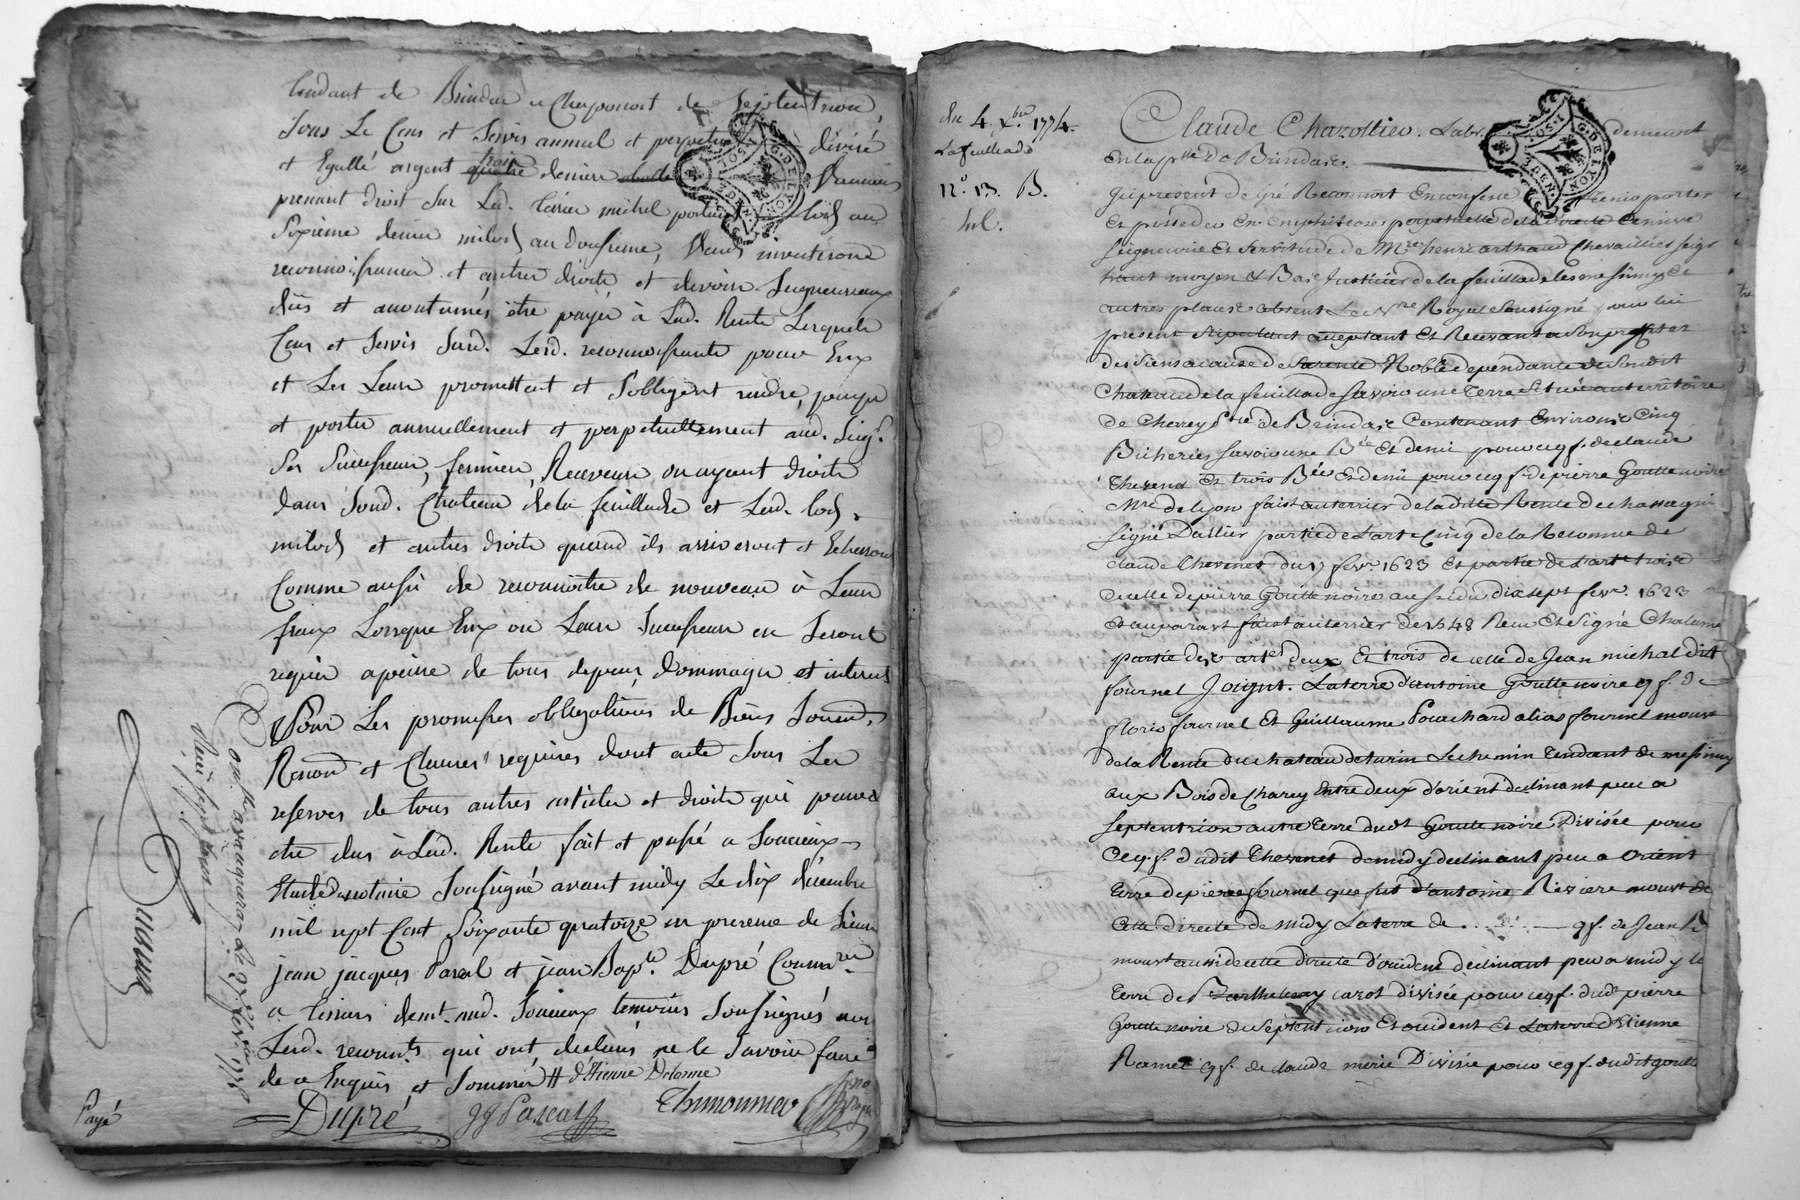 tendant de Brindas a Chaponost de Septentrion,
Sous Le Cens et Servis annuel et perpetuel divisé
et Egallé argent trois deniers Viennois
prenant droit sur Led. terrier michel portant lods au
Sixieme denier milods au douzieme, Vends investisons
reconnoissances et autres droits et devoirs Seigneuriaux
dûs et accoutumés être payés à Lad. Rente Lesquels
Cens et Servis Susd. Lesd. reconnoissants pour Eux
et Les Leurs promettent et S'obligent rendre, payer
et porter annuellement et perpetuellement aud. Seigr.
Ses Successeurs, fermiers, Receveurs ou ayant droits
dans Sond. Chateau de la feuillade et Lesd. lods,
milods et autres droits quand ils arriveront et Echerront
Comme aussi de reconnoitre de nouveau à Leurs
fraix Lorsque Eux ou Leurs Successeurs en Seront
requis apeine de tous depens, Dommages et interets
Pour Les promesses obligations de Biens Soumd.
Renond et Clauses requises dont acte Sous Les
reserves de tous autres articles et droits qui peuvent
être dus à Lad. Rente fait et passé a Soucieux
Etude du notaire Soussigné avant midy Le dix décembre
mil sept Cent Soixante quatorze en presence de Sieurs
jean jacques Pascal et jean Bapte. Dupré Commres
a terriers demt. aud. Soucieux temoins Soussignés avec
Lesd. reconnts qui ont declarés ne le Savoir faire
de ce Enquis et Sommés # d'Etienne Delorme
Dupré JJ Pascal Thimonnier
Payé
du 4. Xbre. 1774.
Lafeuillade
N.º 13. B.
Claude Chazottier. Labr. demeurt
En la psse de Brindas.
qui present de Gré Reconnoit Enconfesse Tenir porter
Et posseder En Emphiteose perpetuelle de la Directe Censive
Seigneurie Et Servitude de Mre henri arthaud Chevallier Seigr
haut moyen Et Bas Justicier de la feuillade lescressimy Et
autres places absent Le Nre Royal Soussigné pour lui
present Stipulant acceptant Et Recevant a Son proffit Et
des Siens a cause de Sa rente Noble dependante de Sondit
Chateau de la feuillade Savoir une Terre Situé au territoire
de Cherey psse de Brindas Contenant Environ Cinq
Bicherées Savoir une Bée Et demi pour cq f. de claude
Chevenet Et trois Bées Et demi pour cq f. de pierre Goutte noire
Mre de Lyon fait au terrier de la ditte Rente de chassagni
Signé Dallier partie de L'arte Cinq de la Reconnue de
claude Chevenet du 17 fevr. 1623 Et partie de L'arte trois e
de celle de pierre Goutte noire aussi du dix sept fevr. 1623
Et auparavt fait au terrier de 1648 Reçu Et Signé Chalume
partie des artes deux Et trois de celle de Jean michal dit
fournel Joignt. La terre d'antoine Goutte noire cq f. de
floris fournel Et Guillaume Pouchard alias fournel mouvt
de la Rente du chateau de turin Le chemin Tendant de messimy
aux Bois de Charey Entre deux d'orient declinant peu a
Septentrion autre terre dudt Goutte noire Divisée pour
Ceq. f. dudit Chevenet de midy declinant peu a Orient
Terre de pierre fournel que fut d'antoine Riviere mouvt de
Cette directe de midy La terre de ...... — q f. de Jean B
mouvt aussi de cette directe d'occident declinant peu a midy la
Terre de Barthelemy carot Divisée pour ceq f. dudt pierre
Goutte noire de Septentrion Et occident Et La terre d'Etienne
Ramet cq f. de claude merie Divisée pour ceq f. dudit goutte